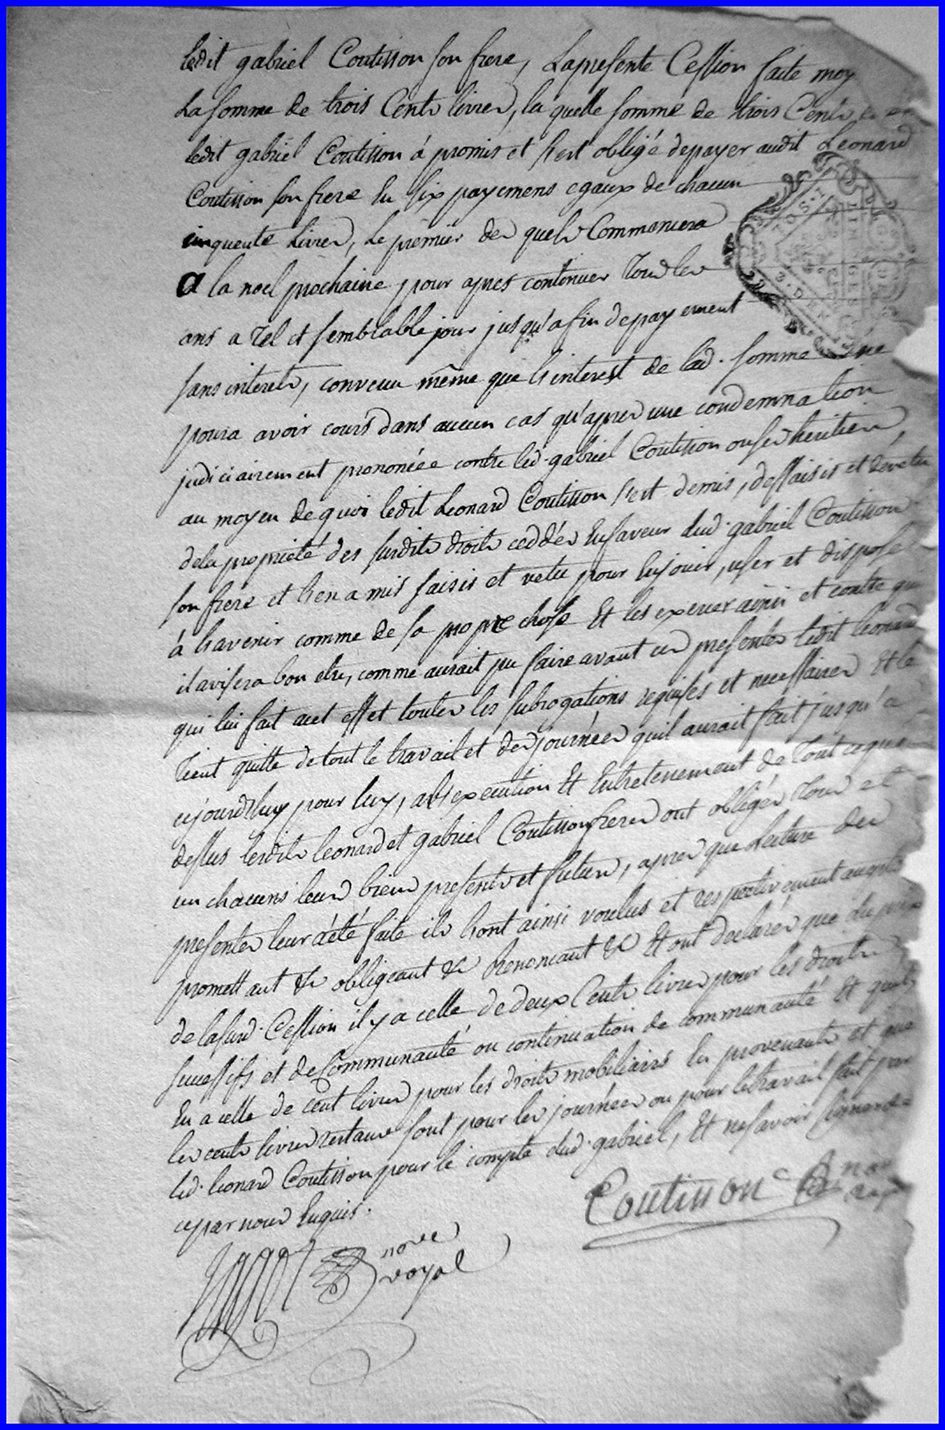 ledit gabriel Coutisson son frere, la presente Cession faite moy
La somme de trois Cents livres, la quelle somme de trois Cents
ledit gabriel Coutisson à promis et s'est obligé de payer audit Leonard
Coutisson son frere En six payemens egaux de chacun
cinquente Livres, Le premier des quels Commencera
a la noel prochaine pour apres continuer Tous les
ans a Tel et semblable jour jusqu'a fin de payement
sans interets, convenu même que l'interest de lad. somme ne
poura avoir cours dans aucun cas qu'apres une condemnation
judiciairement prononcée contre led. gabriel Coutisson ou ses heritiers,
au moyen de quoi ledit Leonard Coutisson s'est demis, dessaisis et devetu
de la propriété des susdits droits ceddés En faveur dud. gabriel Coutisson
son frere et l'en a mis saisis et vetu pour En jouir, user et disposer
à l'avenir comme de sa propre chose Et les exercer ainsi et contre qui
il avisera bon etre, comme aurait pu faire avant ces presentes ledit leonard
qui lui fait a cet effet toutes les subrogations requises et necessaires Et le
Tient quitte de tout le travail et des journées quil aurait fait jusqu'a
aujourd'huy pour luy, a l'execution Et Entretenement de Tout ce que
dessus lesdits leonard et gabriel Coutisson freres ont obligés Tous et
un chacuns leurs biens presents et futurs, apres que Lecture des
presentes leur a été faite ils l'ont ainsi voulus et respectivement
promettant &c obligeant &c Renonciant &c Et ont declarés que du prix
de lasusd. Cession il y a celle de deux Cents livres pour les droits
successifs et de Communauté ou continuation de communauté Et
En a celle de cent livres pour les droits mobiliaires En provenants et que
les cents livres restans sont pour les journées ou pour le travail fait par
led. leonard Coutisson pour le compte dud. gabriel, Et ne savoir signer
ce par nous Enquis.
Coutisson
no.re
royal